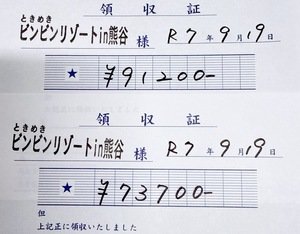 領収証
ときめき
ビンビンリゾートin熊谷 様 R7年9月19日
★ ¥91200-
領収証
ときめき
ビンビンリゾートin熊谷 様 R7年9月19日
★ ¥73700-
但
上記正に領収いたしました